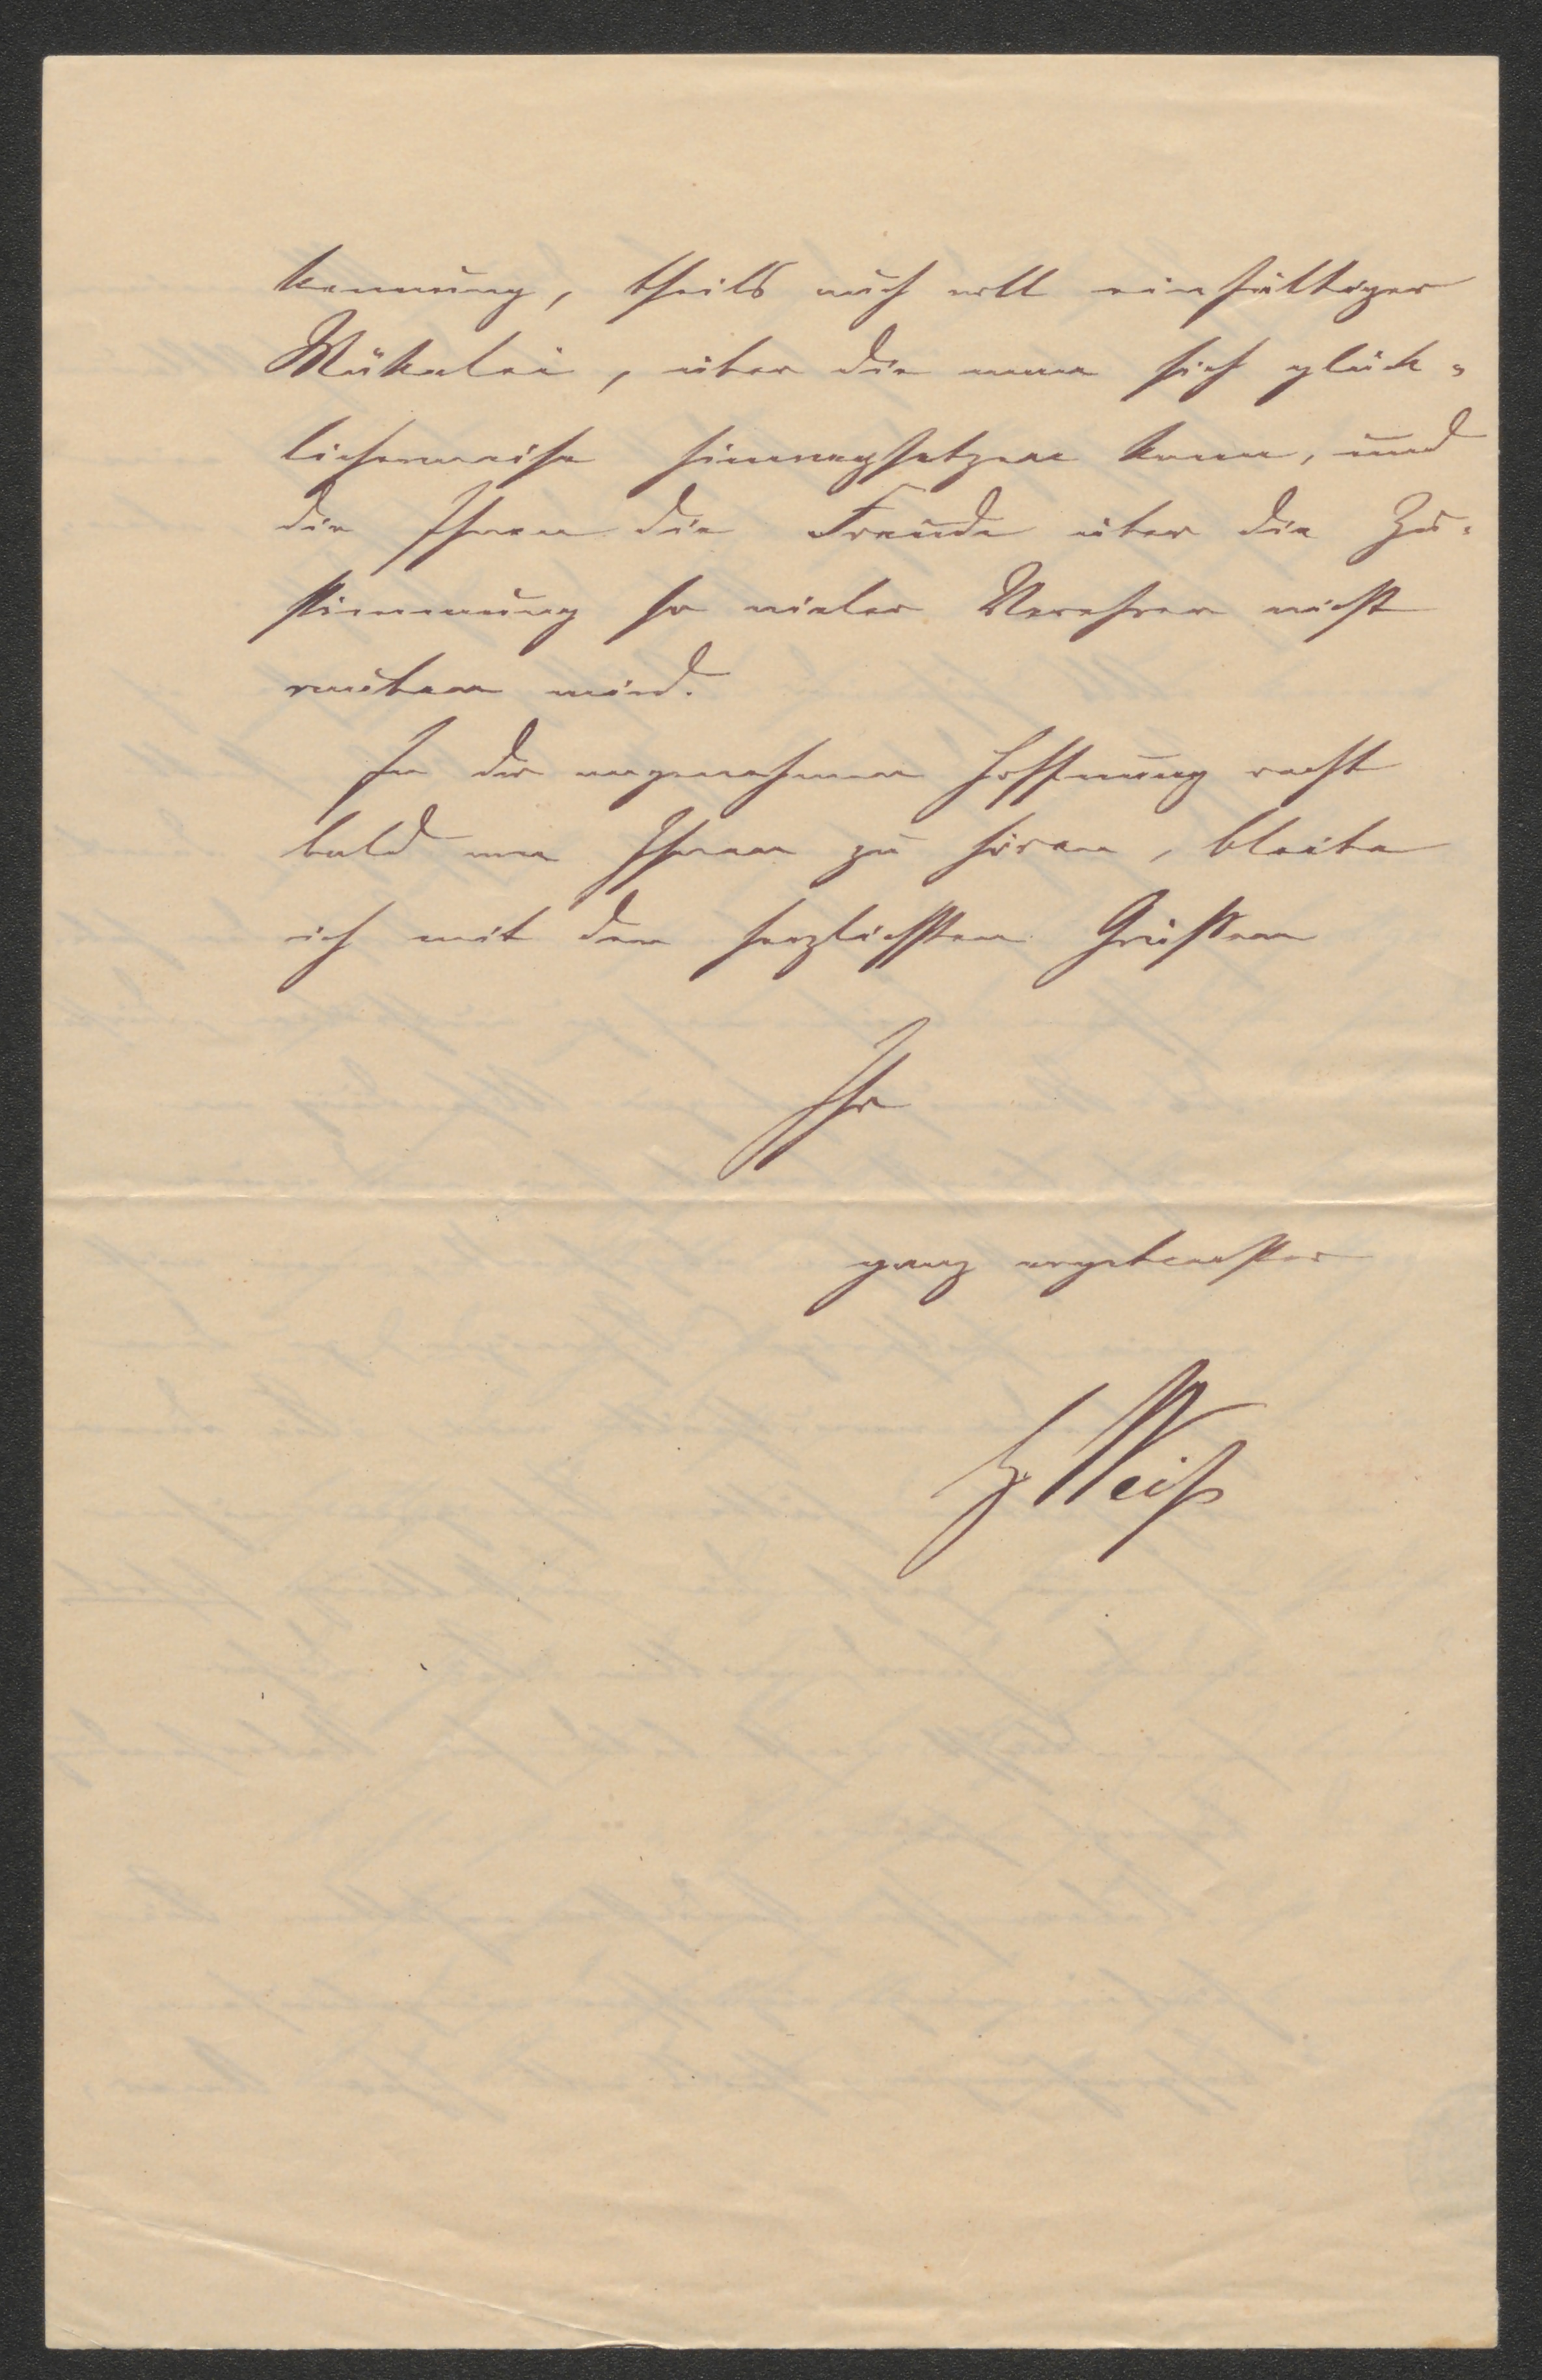 kennung, theils auch voll einfältiger
Mäkelei, über die man sich glück-
licherweise hinwegsetzen kann, und
die Ihnen die Freude über die Zu-
stimmung so vieler Verehrer nicht
rauben wird.
In der angenehmen Hoffnung recht
bald von Ihnen zu hören, bleibe
ich mit den herzlichsten Grüßen
Ihr
ganz ergebenster
Weiß